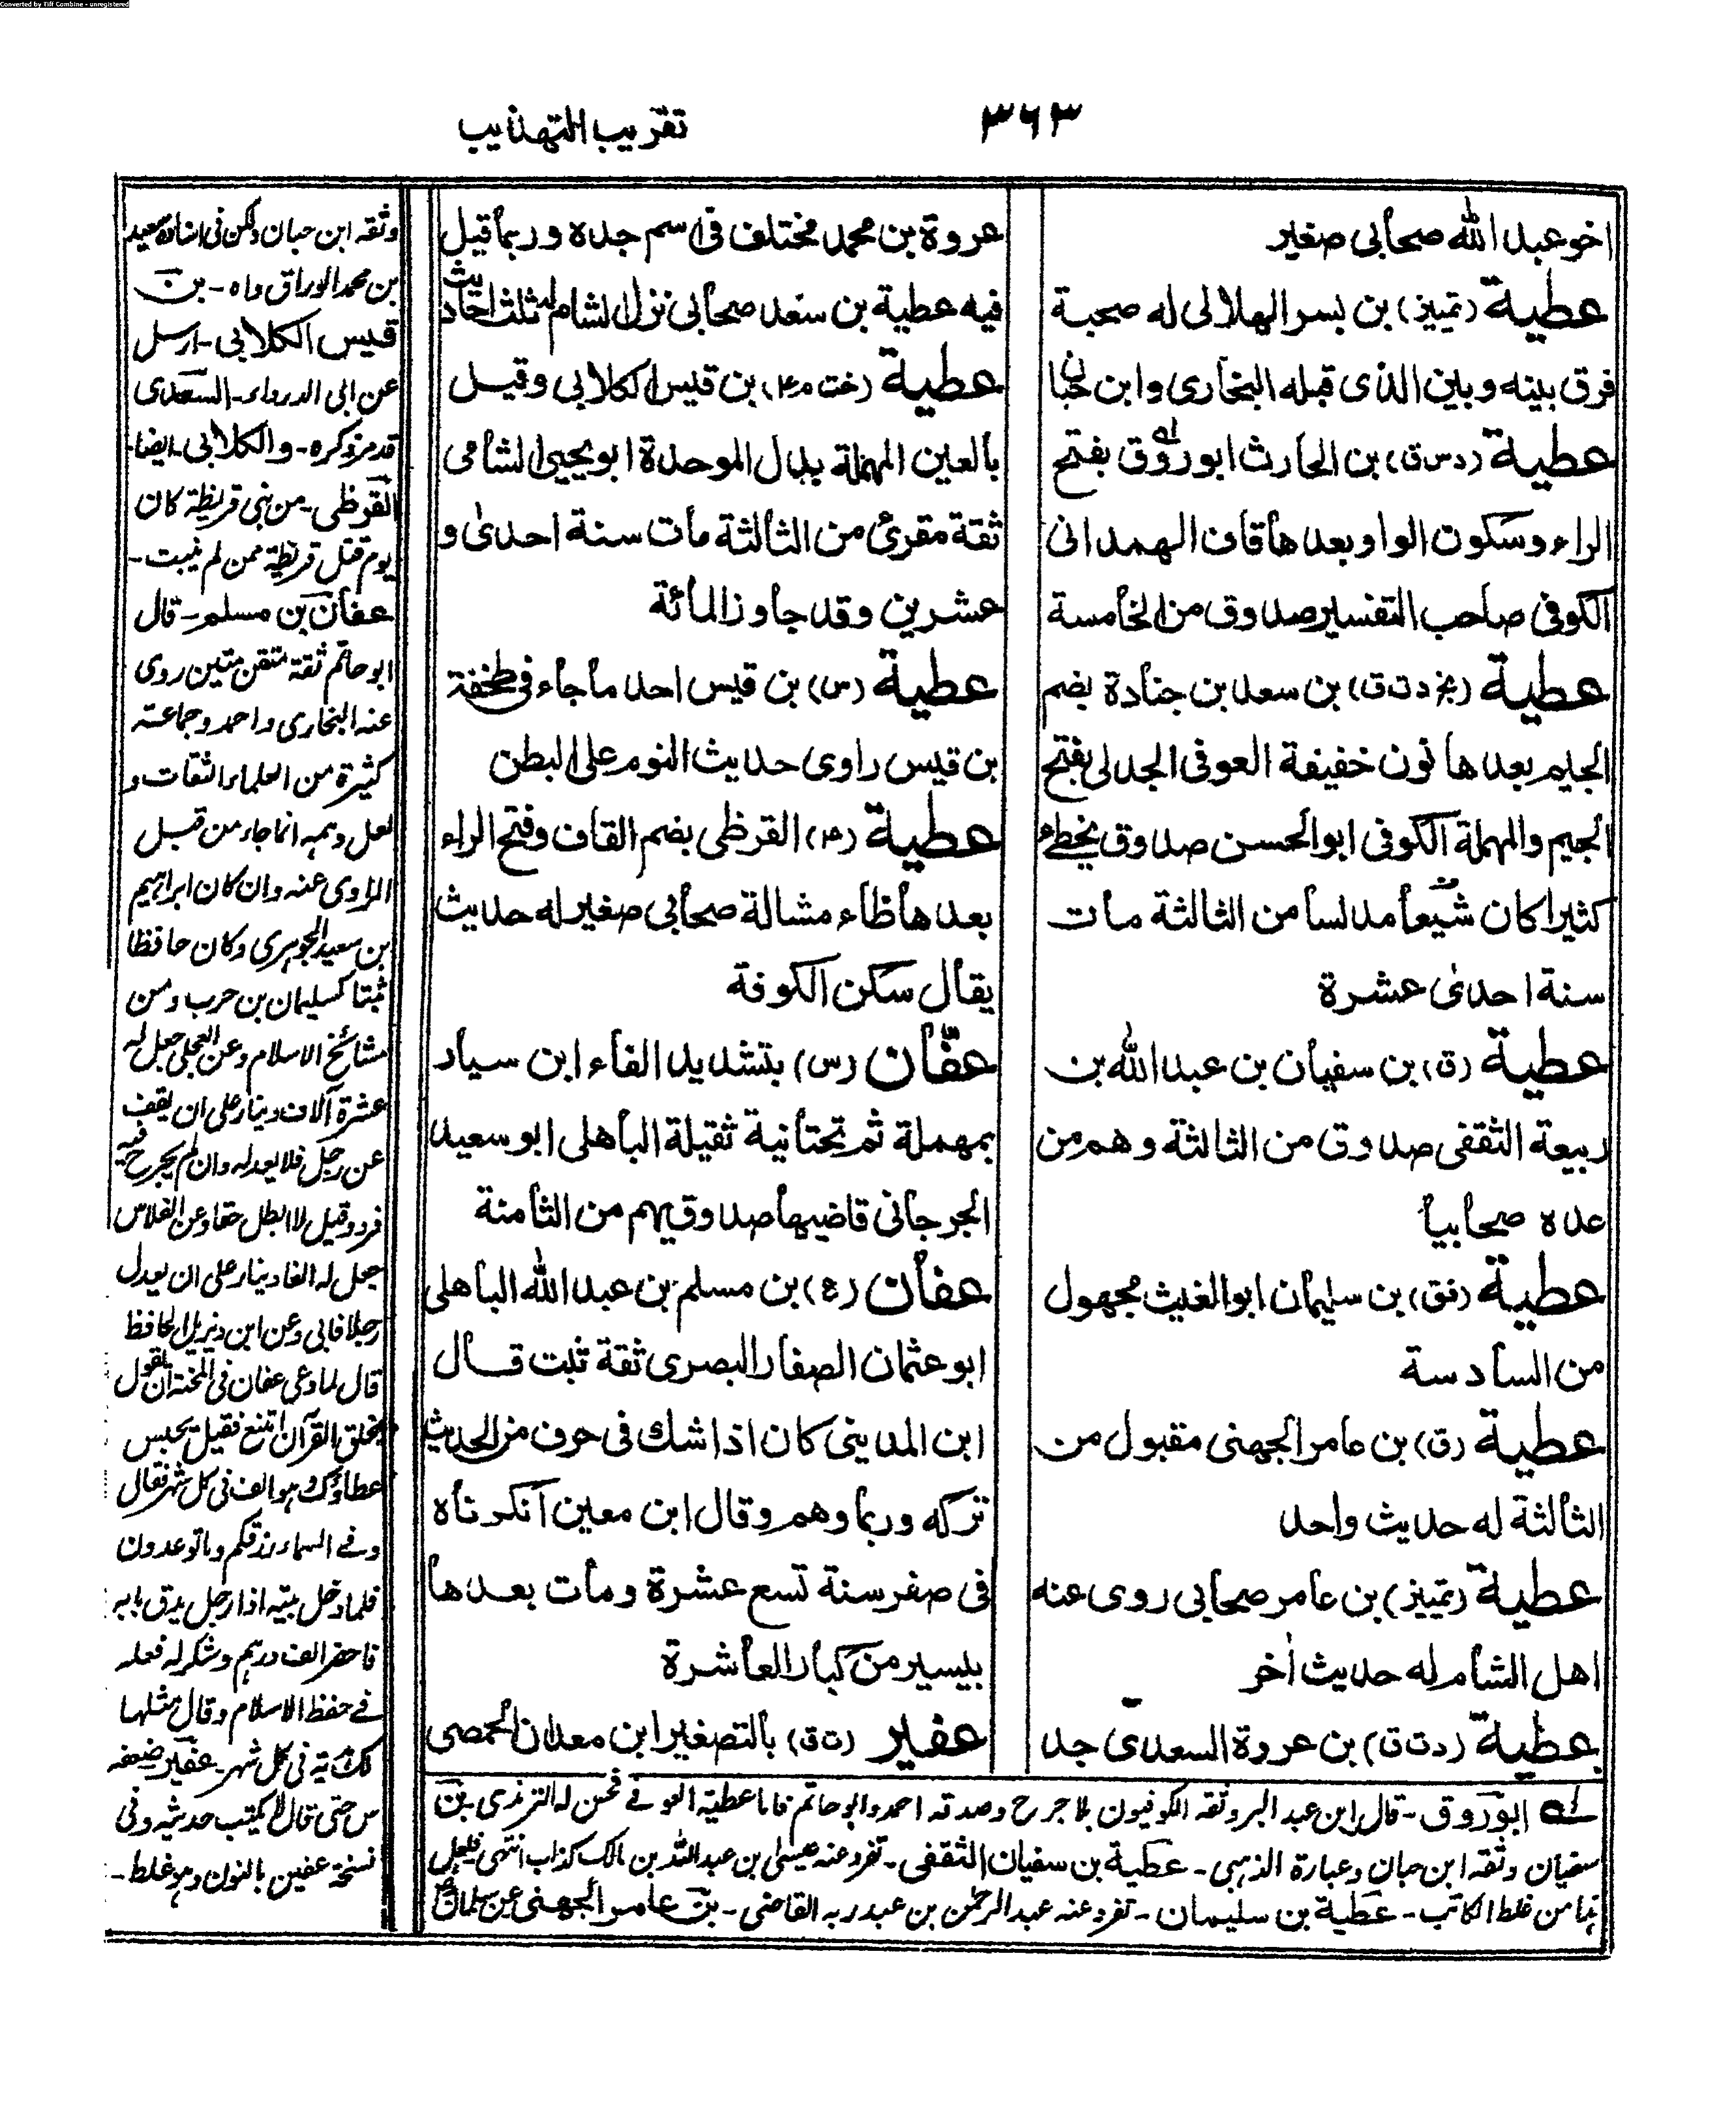 Converted by Tiff Combine - unregistered
٣٦٣
تقريب التهذيب
اخو عبد الله صحابى صغير
عطية (تمييز) بن بسر الهلالى له صحبة
فرق بينه وبين الذى قبله البخارى وابن حبان
عطية (د س ق) بن الحارث ابو روق بفتح
الراء وسكون الواو بعدها قاف الهمدانى
الكوفى صاحب التفسير صدوق من الخامسة
عطية (بخ د ت ق) بن سعد بن جنادة بضم
الجيم بعدها نون خفيفة العوفى الجدلى بفتح
الجيم والمهملة الكوفى ابو الحسن صدوق يخطئ
كثيرا كان شيعيا مدلسا من الثالثة مات
سنة احدى عشرة
عطية (ق) بن سفيان بن عبد الله بن
ربيعة الثقفى صدوق من الثالثة وهم من
عده صحابيا
عطية (فق) بن سليمان ابو الغيث مجهول
من السادسة
عطية (ق) بن عامر الجهنى مقبول من
الثالثة له حديث واحد
عطية (تمييز) بن عامر صحابى روى عنه
اهل الشام له حديث اخر
عطية (د ت ق) بن عروة السعدى جد
عروة بن محمد مختلف فى اسم جده وربما قيل
فيه عطية بن سعد صحابى نزل الشام له ثلث احاديث
عطية (خت م ٤) بن قيس الكلابى وقيل
بالعين المهملة بدل الموحدة ابو يحيى الشامى
ثقة مقرئ من الثالثة مات سنة احدى و
عشرين وقد جاوز المائة
عطية (س) بن قيس احد ما جاء فى طخفة
بن قيس راوى حديث النوم على البطن
عطية (٤) القرظى بضم القاف وفتح الراء
بعدها ظاء مشالة صحابى صغير له حديث
يقال سكن الكوفة
عفّان (س) بتشديد الفاء ابن سيار
بمهملة ثم تحتانية ثقيلة الباهلى ابو سعيد
الجرجانى قاضيها صدوق يهم من الثامنة
عفان (ع) بن مسلم بن عبد الله الباهلى
ابو عثمان الصفار البصرى ثقة ثبت قال
ابن المدينى كان اذا شك فى حرف من الحديث
تركه وربما وهم وقال ابن معين انكرناه
فى صفر سنة تسع عشرة ومات بعدها
بيسير من كبار العاشرة
عفير (ت ق) بالتصغير ابن معدان الحمصى
وثقه ابن حبان ولكن فى اسناده سعيد
بن محمد الوراق واه - بن
قيس الكلابى - ارسل
عن ابى الدرداء - السعدى
قد مر ذكره - والكلابى - ايضا -
القرظى - من بنى قريظة كان
يوم قتل قريظة ممن لم ينبت -
عفان بن مسلم - قال
ابو حاتم ثقة متقن متين روى
عنه البخارى واحمد وجماعة
كثيرة من العلماء الثقات و
لعل وهمه انما جاء من قبل
الراوى عنه وان كان ابراهيم
ابن سعيد الجوهرى وكان حافظا
ثبتا كسليمان بن حرب ومن
مشائخ الاسلام وعن العجلى جعل له
عشرة آلاف دينار على ان يقف
عن رجل فلا يعدله وان لم يجرح فيه
فرد وقيل لا ابطل حقا وعن الفلاس
جعل له الفا دينار على ان يعدل
رجلا فابى وعن ابن ديزيل الحافظ
قال لما دعى عفان فى المحنة ان يقول
بخلق القرآن امتنع فقيل يحبس
عطاؤك وهو الف فى كل شهر فقال
وفى السماء رزقكم وما توعدون
فلما دخل بيته اذا رجل يدق بابه
فاحضر الف درهم وشكر له فعله
فى حفظ الاسلام وقال مثلها
لك آتية فى كل شهر - عفير ضعفه
س حتى قال لا يكتب حديثه وفى
نسخة عفين بالنون وهو غلط -
له ابو روق - قال ابن عبد البر وثقه الكوفيون بلا جرح وصدقه احمد وابو حاتم فاما عطية العوفى فحسن له الترمذى - بن
سفيان وثقه ابن حبان وعبارة الذهبى - عطية بن سفيان الثقفى - تفرد عنه عيسى بن عبد الله بن مالك كذاب انتهى فلعل
هذا من غلط الكاتب - عطية بن سليمان - تفرد عنه عبد الرحمن بن عبد ربه القاضى - بن عامر الجهنى عن سلمان